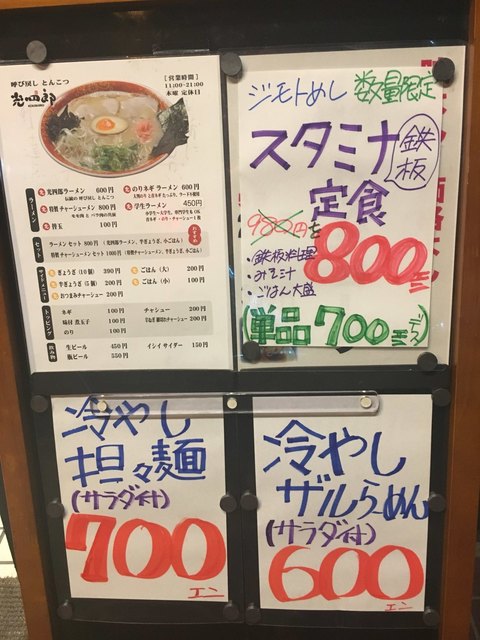 呼び戻し とんこつ
光四郎
[営業時間]
11:00-21:00
木曜 定休日
ラーメン
光四郎ラーメン 600円
伝統の呼び戻しとんこつ
特製チャーシューメン 800円
モモ肉 と バラ肉の共演
替玉 100円
のりネギラーメン 600円
学生ラーメン 450円
セット
ラーメンセット 800円 (光四郎ラーメン、半ぎょうざ、小ごはん)
特製チャーシューメンセット 1000円 (特製チャーシューメン、半ぎょうざ、小ごはん)
おすすめ
サイドメニュー
ぎょうざ(10個) 390円
半ぎょうざ(5個) 200円
おつまみチャーシュー 200円
ごはん(大) 200円
ごはん(小) 100円
トッピング
ネギ 100円
味付 煮玉子 100円
のり 100円
チャーシュー 200円
飲み物
生ビール 450円
瓶ビール 550円
イシイサイダー 150円
ジモトめし 数量限定
スタミナ鉄板
定食
980円を
800円
・鉄板料理
・みそ汁
・ごはん大盛
(単品700円)
冷やし
担々麺
(サラダ付)
700
エン
冷やし
ザルらぁめん
(サラダ付)
600
エン